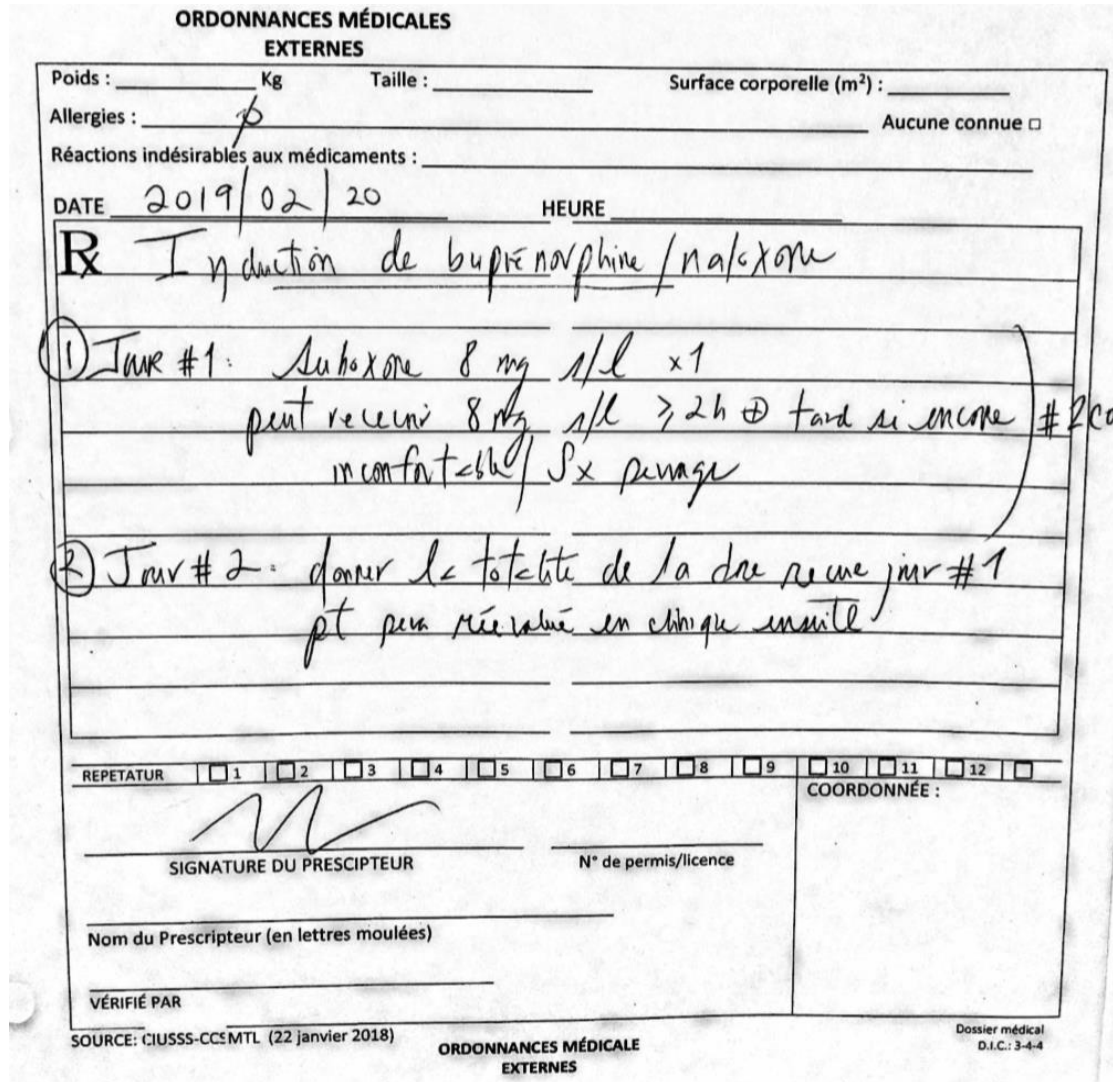 ORDONNANCES MÉDICALES
EXTERNES
Poids : Kg Taille : Surface corporelle (m²) :
Allergies : ø Aucune connue □
Réactions indésirables aux médicaments :
DATE 2019/02/20 HEURE
Rx Induction de buprénorphine/naloxone
① Jour #1: Suboxone 8 mg s/l x1
peut recevoir 8 mg s/l ≥2h ⊕ tard si encore #2
inconfortable/Sx sevrage
② Jour #2: donner la totalité de la dose reçue jour #1
pt sera réévalué en clinique ensuite
REPETATUR □ 1 □ 2 □ 3 □ 4 □ 5 □ 6 □ 7 □ 8 □ 9 □ 10 □ 11 □ 12 □
COORDONNÉE :
SIGNATURE DU PRESCIPTEUR N° de permis/licence
Nom du Prescripteur (en lettres moulées)
VÉRIFIÉ PAR
SOURCE: CIUSSS-CCSMTL (22 janvier 2018)
ORDONNANCES MÉDICALE
EXTERNES
Dossier médical
D.I.C.: 3-4-4